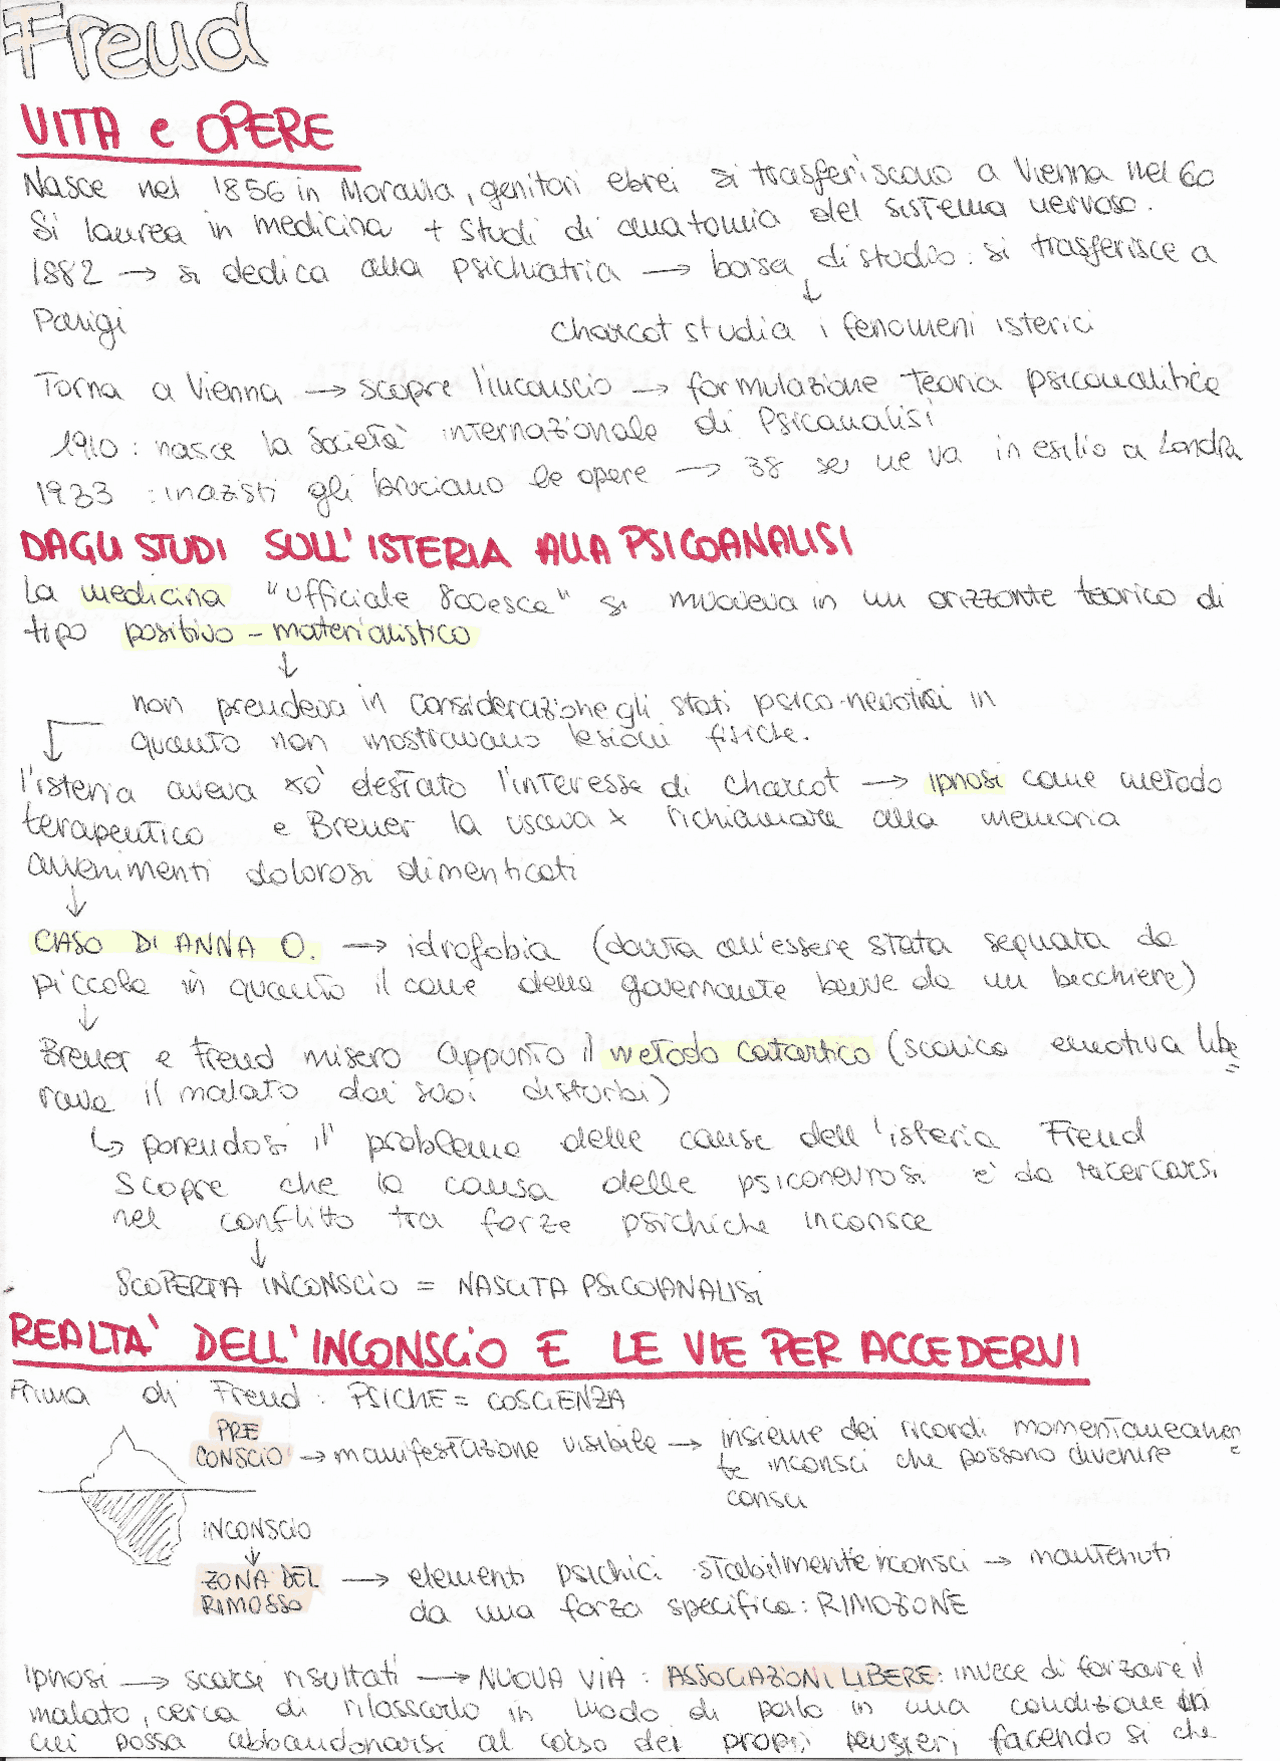 Freud
VITA e OPERE
Nasce nel 1856 in Moravia, genitori ebrei si trasferiscono a Vienna nel 60
Si laurea in medicina + studi di anatomia del sistema nervoso.
1882 → si dedica alla psichiatria → borsa di studio: si trasferisce a
Parigi
↓
Charcot studia i fenomeni isterici
Torna a Vienna → scopre l'inconscio → formulazione teoria psicoanalitica
1910: nasce la Società internazionale di Psicanalisi
1933: i nazisti gli bruciano le opere → 38 se ne va in esilio a Londra
DAGLI STUDI SULL'ISTERIA ALLA PSICOANALISI
La medicina "ufficiale 8ocesca" si muoveva in un orizzonte teorico di
tipo positivo - materialistico
↓
non prendeva in considerazione gli stati psico-nevotici in
quanto non mostravano lesioni fisiche.
l'isteria aveva xò destato l'interesse di Charcot → ipnosi come metodo
terapeutico e Breuer la usava x richiamare alla memoria
avvenimenti dolorosi dimenticati
↓
CASO DI ANNA O. → idrofobia (dovuta all'essere stata segnata da
piccola in quanto il cane della governante bevve da un bicchiere)
↓
Breuer e Freud misero appunto il metodo catartico (scarica emotiva libe
rava il malato dai suoi disturbi)
↳ ponendosi il problema delle cause dell'isteria Freud
scopre che la causa delle psiconevrosi è da ricercarsi
nel conflitto tra forze psichiche inconsce
↓
SCOPERTA INCONSCIO = NASCITA PSICOANALISI
REALTA' DELL'INCONSCIO E LE VIE PER ACCEDERVI
Prima di Freud: PSICHE = COSCIENZA
PRE
CONSCIO → manifestazione visibile → insieme dei ricordi momentaneamen
te inconsci che possono divenire
consci
INCONSCIO
↓
ZONA DEL → elementi psichici stabilmente inconsci → mantenuti
RIMOSSO da una forza specifica: RIMOZIONE
Ipnosi → scarsi risultati → NUOVA VIA: ASSOCIAZIONI LIBERE: invece di forzare il
malato, cerca di rilassarlo in modo di porlo in una condizione in
cui possa abbandonarsi al corso dei propri pensieri, facendo si che